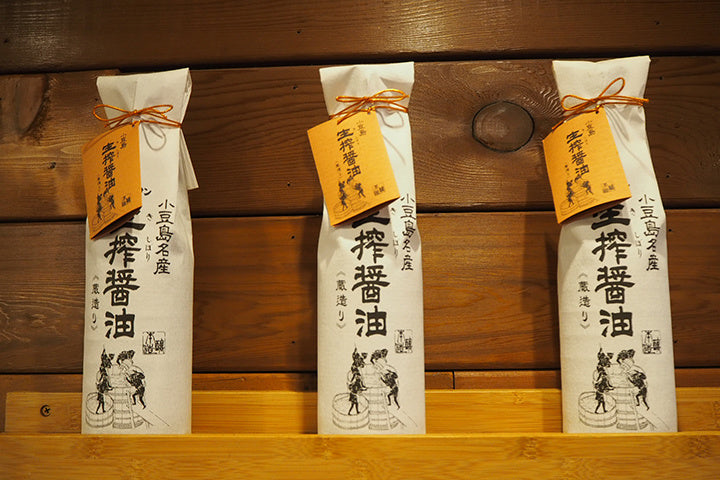 小豆島
生搾醤油
小豆島名産
き しぼり
生搾醤油
《蔵造り》
小豆島
生搾醤油
小豆島名産
しぼり
搾醤油
《蔵造り》
小豆島
生搾醤油
小豆島名産
き しぼり
生搾醤油
《蔵造り》